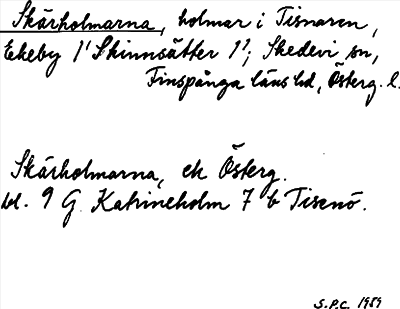 Skärholmarna, holmar i Tisnaren,
Ekeby 1' Skinnsätter 1'; Skedevi sn,
Finspånga läns hd, Österg. l.
Skärholmarna, ek Österg.
bl. 9 G. Katrineholm 7 b Tisenö.
S.P.C. 1989